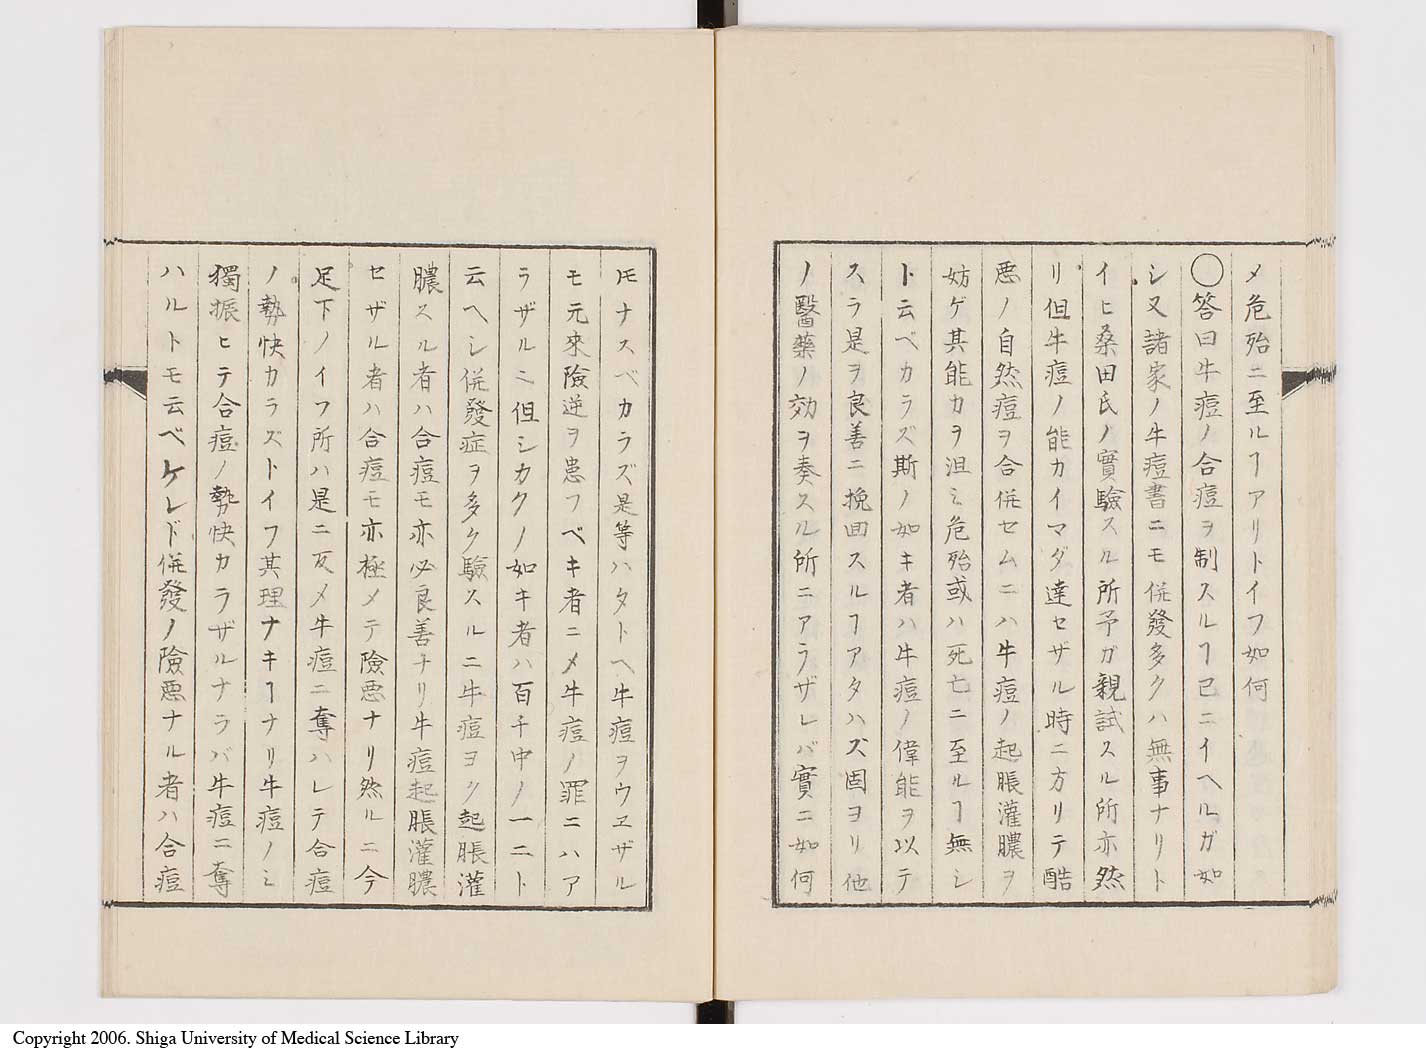 メ危殆ニ至ルヿアリトイフ如何
〇答曰牛痘ノ合痘ヲ制スルヿ已ニイヘルガ如
シ又諸家ノ牛痘書ニモ併發多クハ無事ナリト
イヒ桑田氏ノ實驗スル所予ガ親試スル所亦然
リ但牛痘ノ能力イマダ達セザル時ニ方リテ酷
悪ノ自然痘ヲ合併セムニハ牛痘ノ起脹灌膿ヲ
妨ゲ其能力ヲ沮ミ危殆或ハ死亡ニ至ルヿ無シ
ト云ベカラズ斯ノ如キ者ハ牛痘ノ偉能ヲ以テ
スラ是ヲ良善ニ挽回スルヿアタハズ固ヨリ他
ノ醫藥ノ効ヲ奏スル所ニアラザレバ實ニ如何
𪜈ナスベカラズ是等ハタトヘ牛痘ヲウヱザル
モ元來險逆ヲ患フベキ者ニメ牛痘ノ罪ニハア
ラザルニ但シカクノ如キ者ハ百千中ノ一ニト
云ヘシ併發症ヲ多ク驗スルニ牛痘ヨク起脹灌
膿スル者ハ合痘モ亦必良善ナリ牛痘起脹灌膿
セザル者ハ合痘モ亦極メテ險悪ナリ然ルニ今
足下ノイフ所ハ是ニ反メ牛痘ニ奪ハレテ合痘
ノ勢快カラズトイフ其理ナキヿナリ牛痘ノミ
獨振ヒテ合痘ノ勢快カラザルナラバ牛痘ニ奪
ハルトモ云ベケレド併發ノ險悪ナル者ハ合痘
Copyright 2006. Shiga University of Medical Science Library